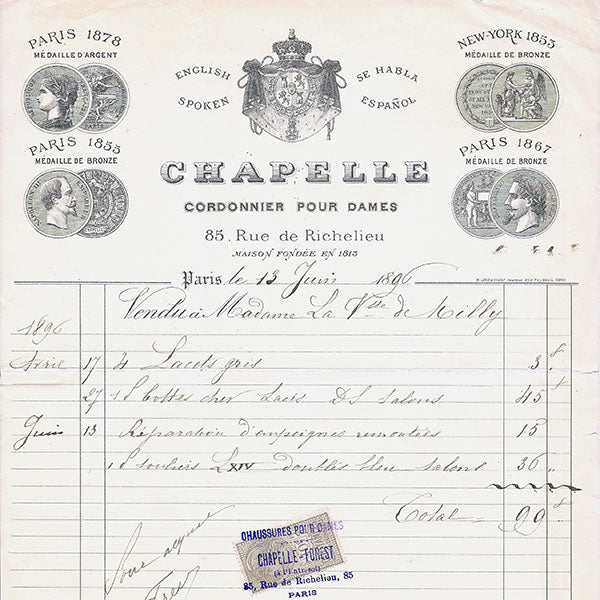 PARIS 1878
MÉDAILLE D'ARGENT
NEW-YORK 1853
MÉDAILLE DE BRONZE
ENGLISH
SPOKEN
SE HABLA
ESPAÑOL
PARIS 1855
MÉDAILLE DE BRONZE
PARIS 1867
MÉDAILLE DE BRONZE
CHAPELLE
CORDONNIER POUR DAMES
85, Rue de Richelieu
MAISON FONDÉE EN 1813
Paris, le 13 Juin 1896
Vendu à Madame La Vtsse de Milly
1896
Avril 17 4 Lacets gris 3
27 1 P bottes chev laces DS salons 45
Juin 13 Réparation d'empeignes remontées 15
1 P souliers LXIV doublés bleu salons 36
Total = 99
Pour acquit
CHAUSSURES POUR DAMES
CHAPELLE-FOREST
(à l'Entresol)
85, Rue de Richelieu, 85
PARIS